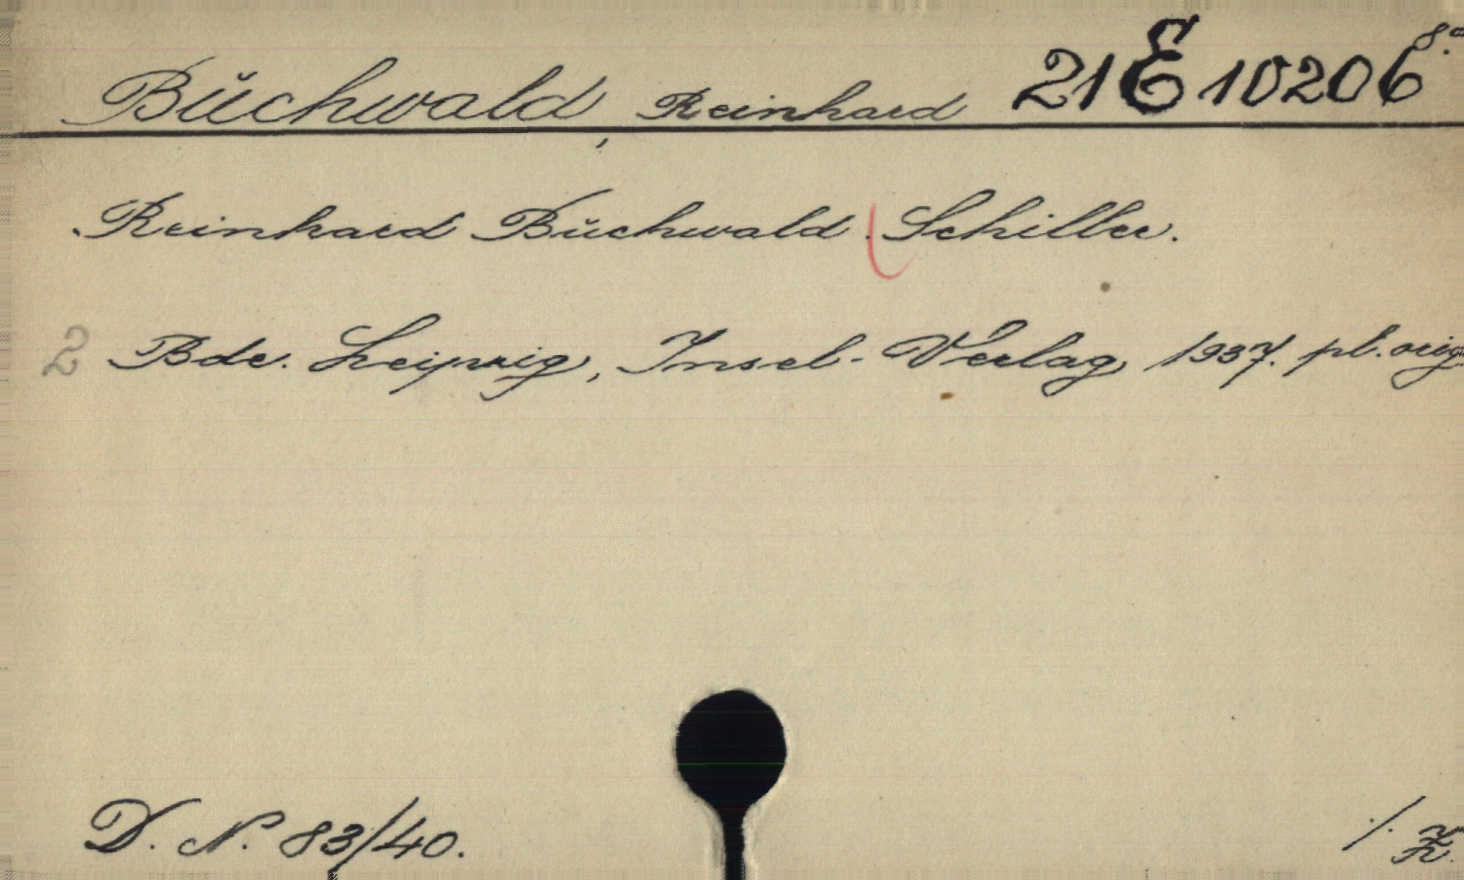 Bŭchwald, Reinhard 21 E 10206 8°
Reinhard Bŭchwald. Schiller.
2 Bde. Leipzig, Insel-Verlag 1937. pl. orig
D. N. 83/40. /.